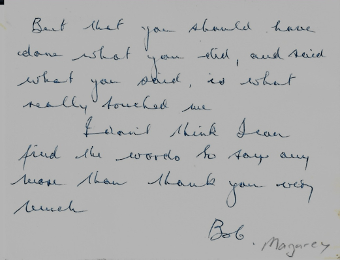 But that you should have
done what you did, and said
what you said, is what
really touched me
I don't think I can
find the words to say any
more than thank you very
much
Bob.
Magarey